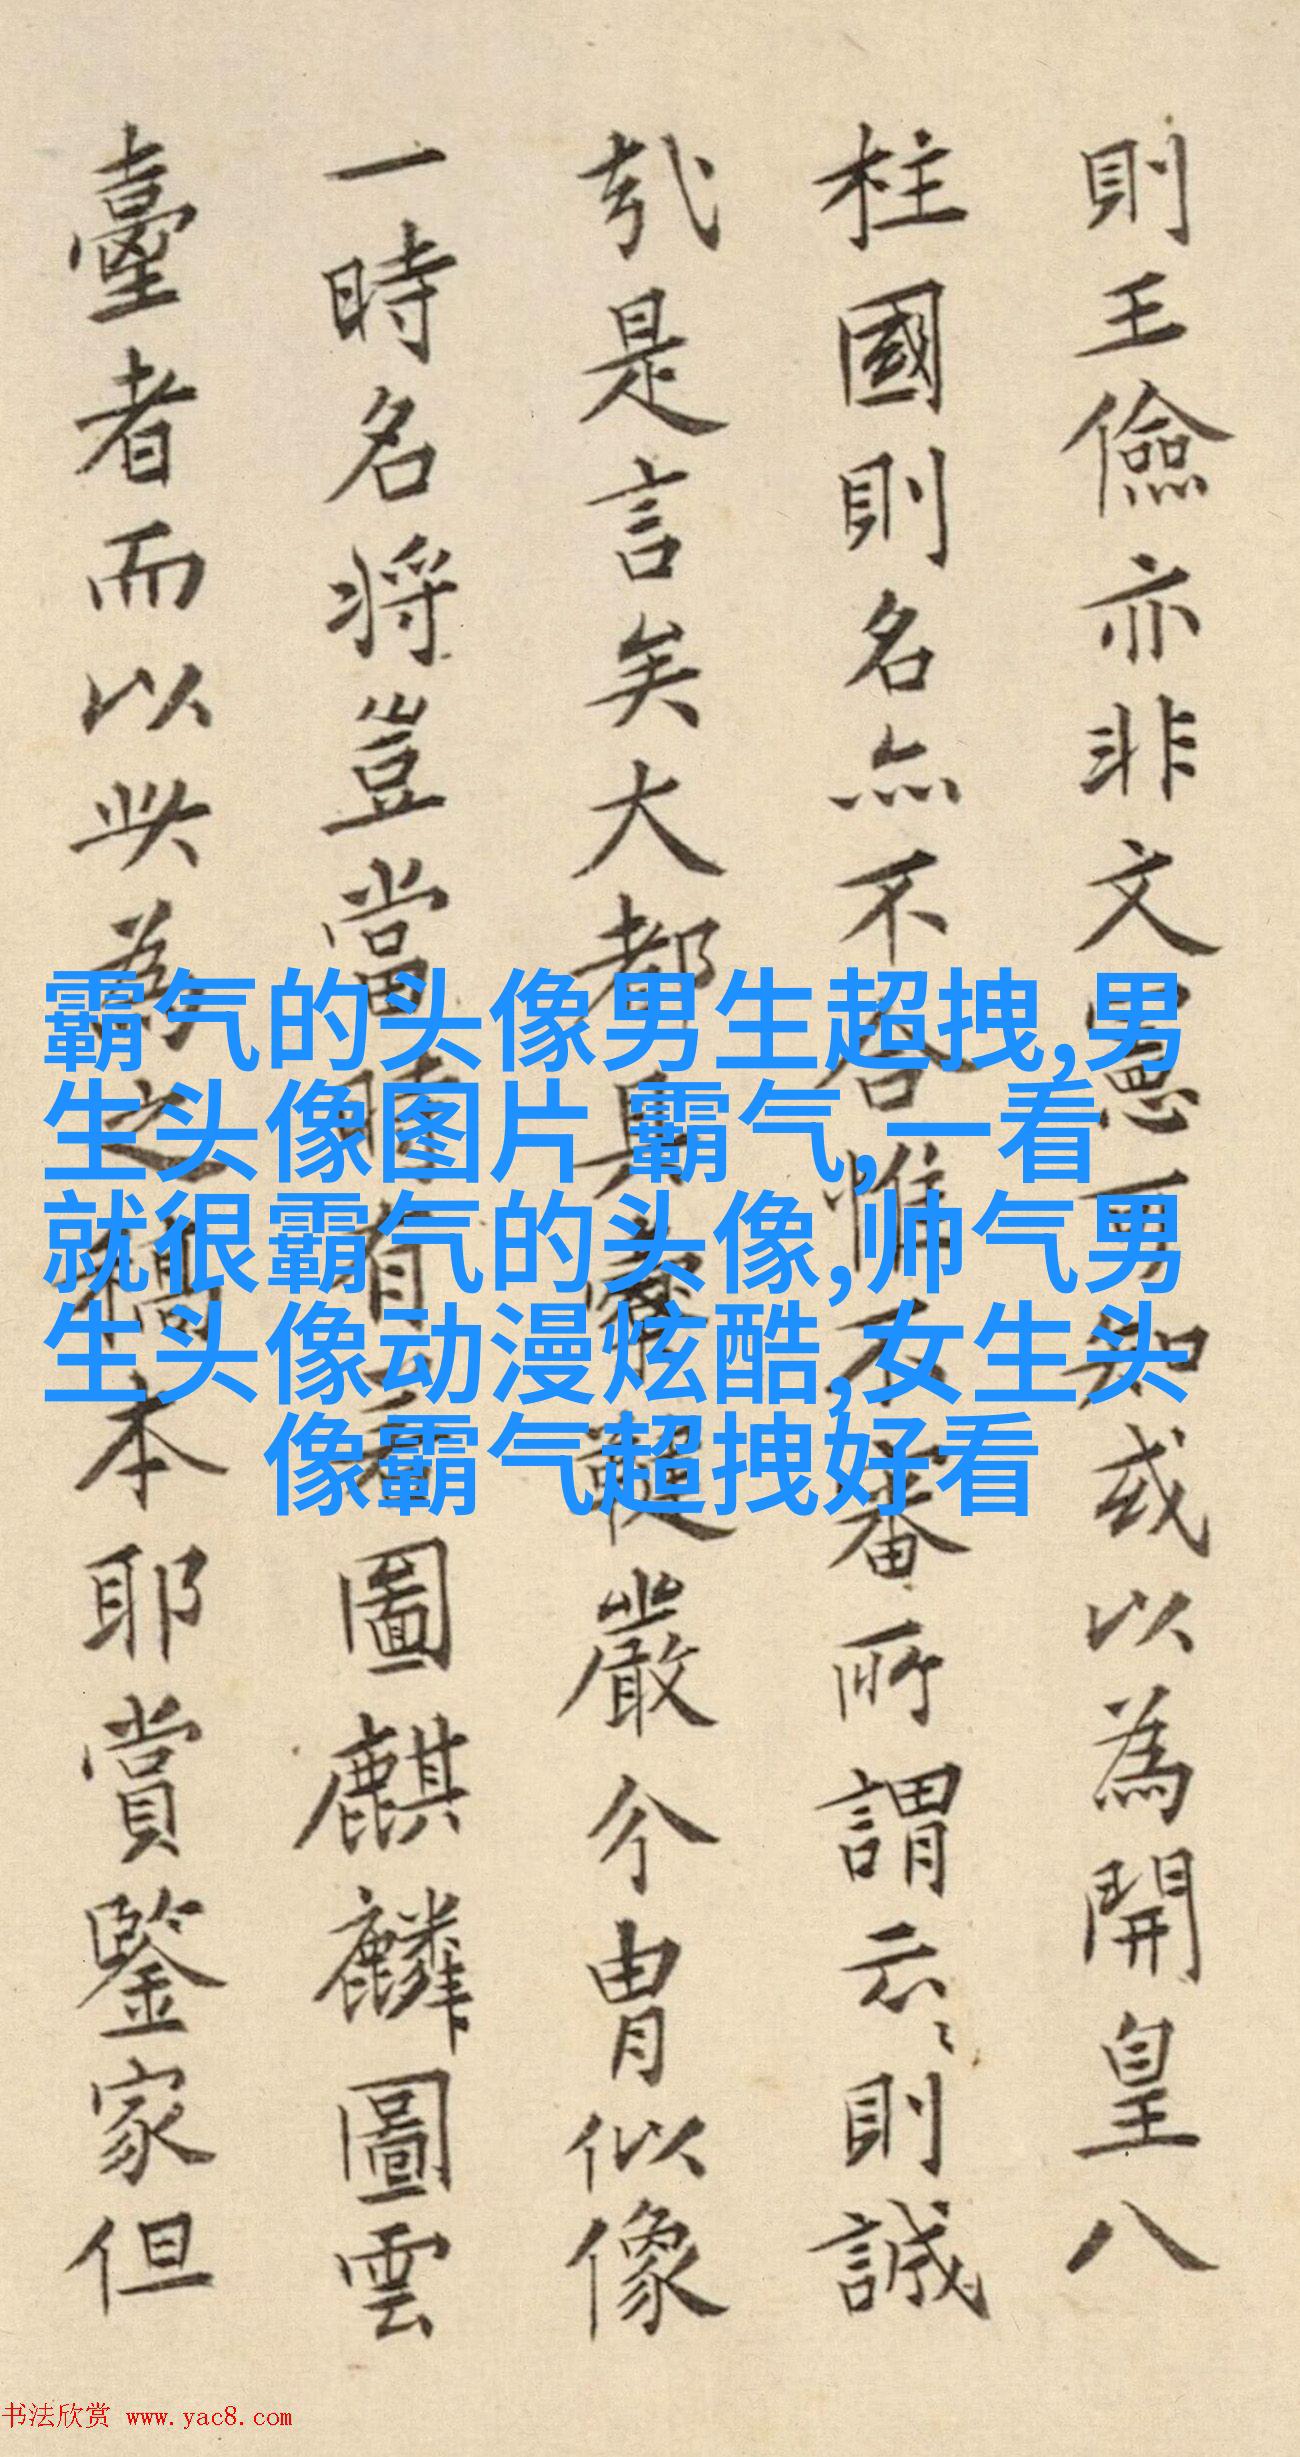 則王儉亦非文憲可知或以為開皇八
柱國則名亦不合惟不審所謂云〻則誠
哉是言矣大都具嚴介冑似像
一時名將豈當時有圖麒麟圖雲
臺者而以此為之稿本耶賞鑒家但
霸气的头像男生超拽,男
生头像图片 霸气,一看
就很霸气的头像,帅气男
生头像动漫炫酷,女生头
像霸气超拽好看
书法欣赏 www.yac8.com